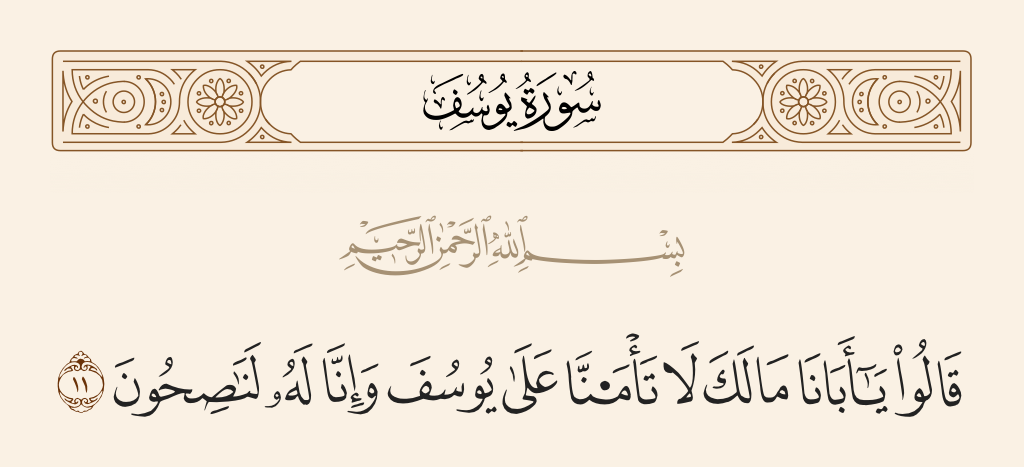 سُورَةُ يُوسُفَ
بِسْمِ ٱللَّهِ ٱلرَّحْمَٰنِ ٱلرَّحِيمِ
قَالُوا۟ يَـٰٓأَبَانَا مَالَكَ لَا تَأْمَ۬نَّا عَلَىٰ يُوسُفَ وَإِنَّا لَهُۥ لَنَـٰصِحُونَ ١١